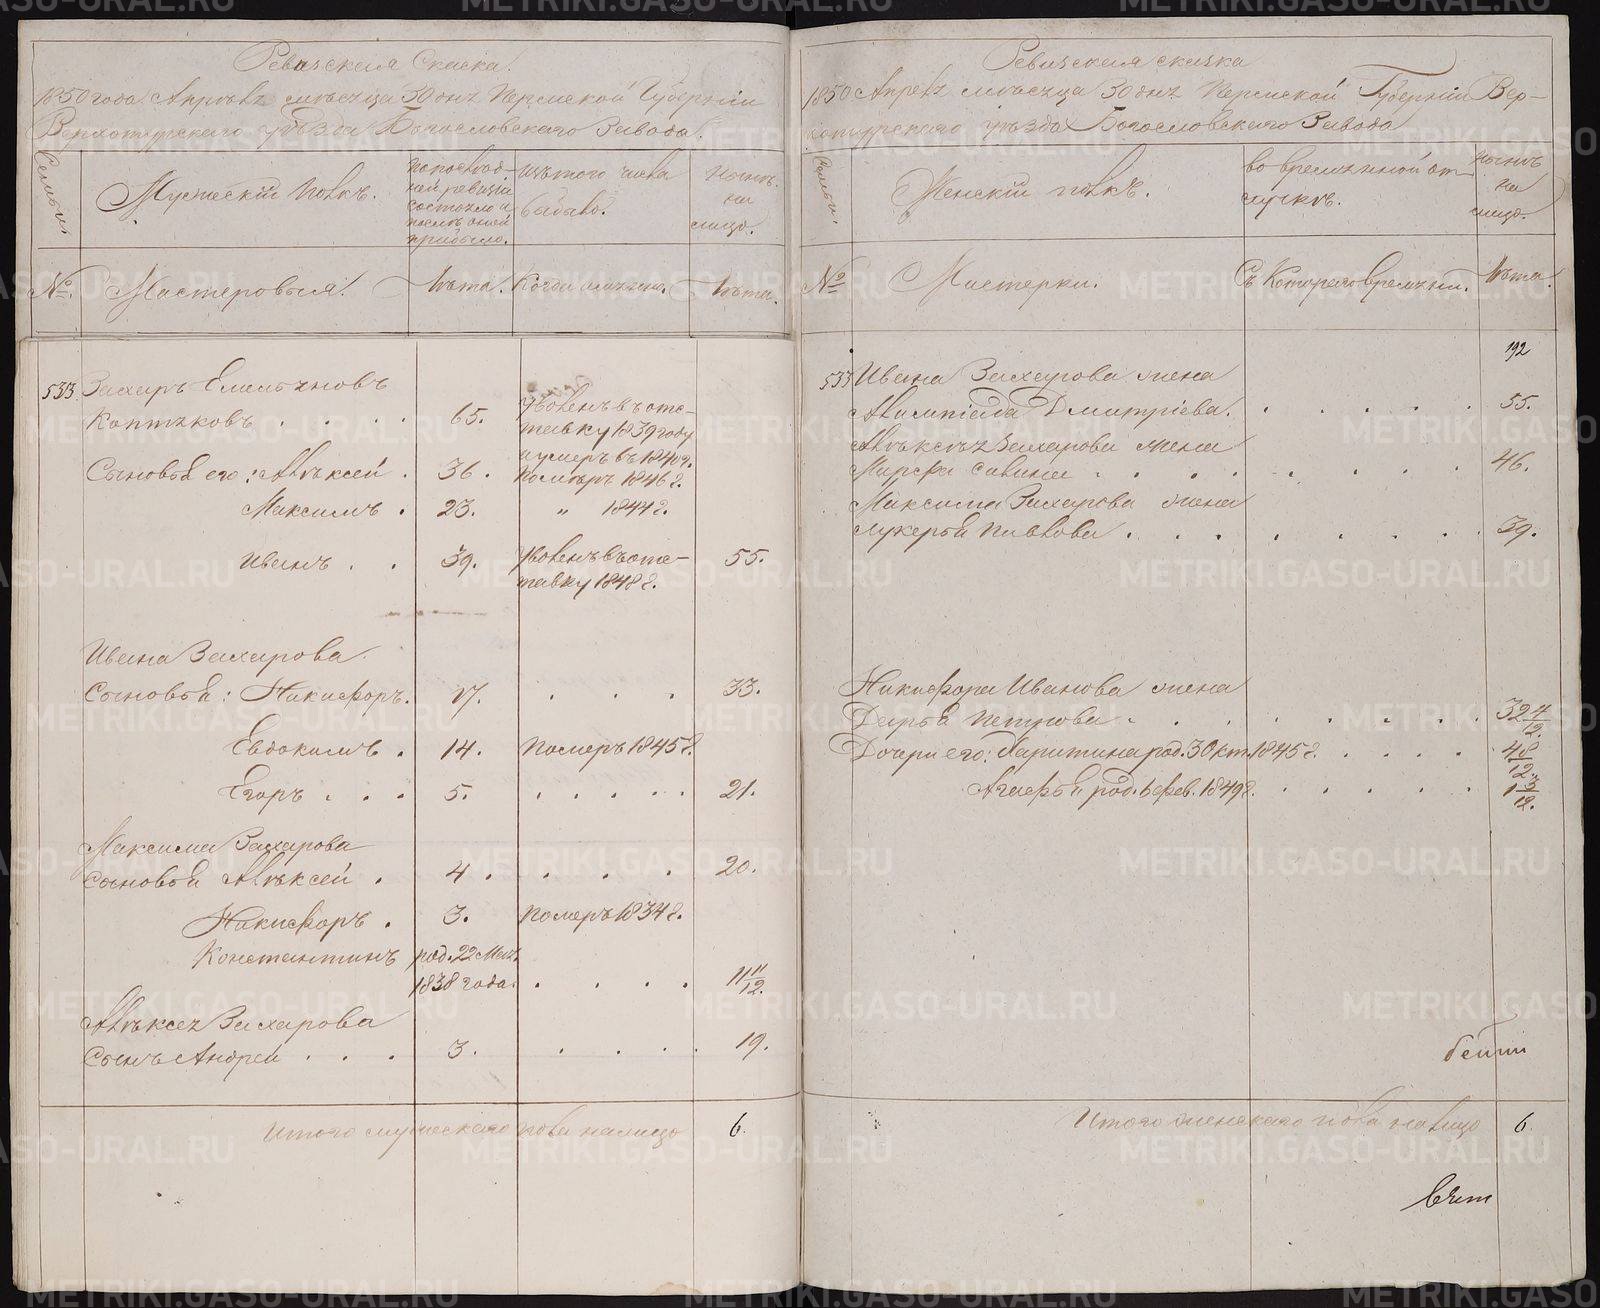 Ревизская Сказка.
1850 года Апреля месяца 30 дня Пермской Губернiи
Верхотурскаго уѣзда Богословскаго Завода.
Семьи.
Мужескiй полъ.
по послѣд-
ней ревизiи
состояло и
послѣ оной
прибыло.
изъ того числа
выбыло.
Нынѣ
на
лицо.
№
Мастеровыя.
Лѣта.
Когда именно.
Лѣта.
533 Захаръ Емельяновъ
Коптяковъ . . . . 65. уволенъ въ отс-
тавку 1839 году
и умеръ въ 1840 г.
Сыновья его: Алѣксей . 36. Помѣръ 1846 г.
Максимъ . 23. „ 1844 г.
Иванъ . . 39. уволенъ въ отс- 55.
тавку 1848 г.
Ивана Захарова
Сыновья: Никифоръ. 17. . . . 33.
Евдокимъ . 14. Померъ 1845 г.
Егоръ . . . 5. . . . . . 21.
Максима Захарова
сыновья Алѣксей . 4. . . . 20.
Никифоръ . 3. Померъ 1834 г.
Константинъ род. 22 Мая
1838 года. . . . . 11 11/12.
Алѣксея Захарова
Сынъ Андрей . . . 3. . . . . 19.
Итого мужескаго пола налицо 6.
Ревизская сказка
1850 Апреля месяца 30 дня Пермской Губернiи Вер-
хотурскаго уѣзда Богословскаго Завода
Семьи.
Женскiй полъ.
во временной от-
лучкѣ.
Нынѣ
на
лицо.
№
Мастерки.
Съ Котораго времяни.
Лѣта.
192
533 Ивана Захарова жена
Алимпiада Дмитрiева. . . . . . 55.
Алѣксея Захарова жена
Марфа Савина . . . . . . . 46.
Максима Захарова жена
Лукерья Павлова . . . . . . . 39.
Никифора Иванова жена
Дарья Петрова . . . . . . . 32 4/12.
Дочери его: Харитина род. 3 Окт. 1845 г. . . . . 4 8/12
Агафья род. 6 фев. 1849 г. . . . . . 1 3/12.
Итого женскаго пола налицо 6.